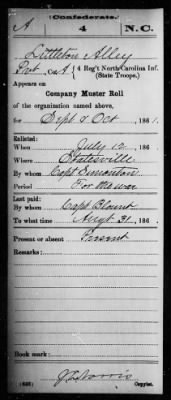 (Confederate.)
A 4 N.C.
Littleton Alley
Pvt, Co. A, 4 Reg't North Carolina Inf.
(State Troops.)
Appears on
Company Muster Roll
of the organization named above,
for Sept & Oct, 1861.
Enlisted:
When July 10, 186 .
Where Statesville
By whom Capt Simonton
Period For the war
Last paid:
By whom Capt Blount
To what time Augt 31, 186 .
Present or absent Present
Remarks:
Book mark:
Copyist.